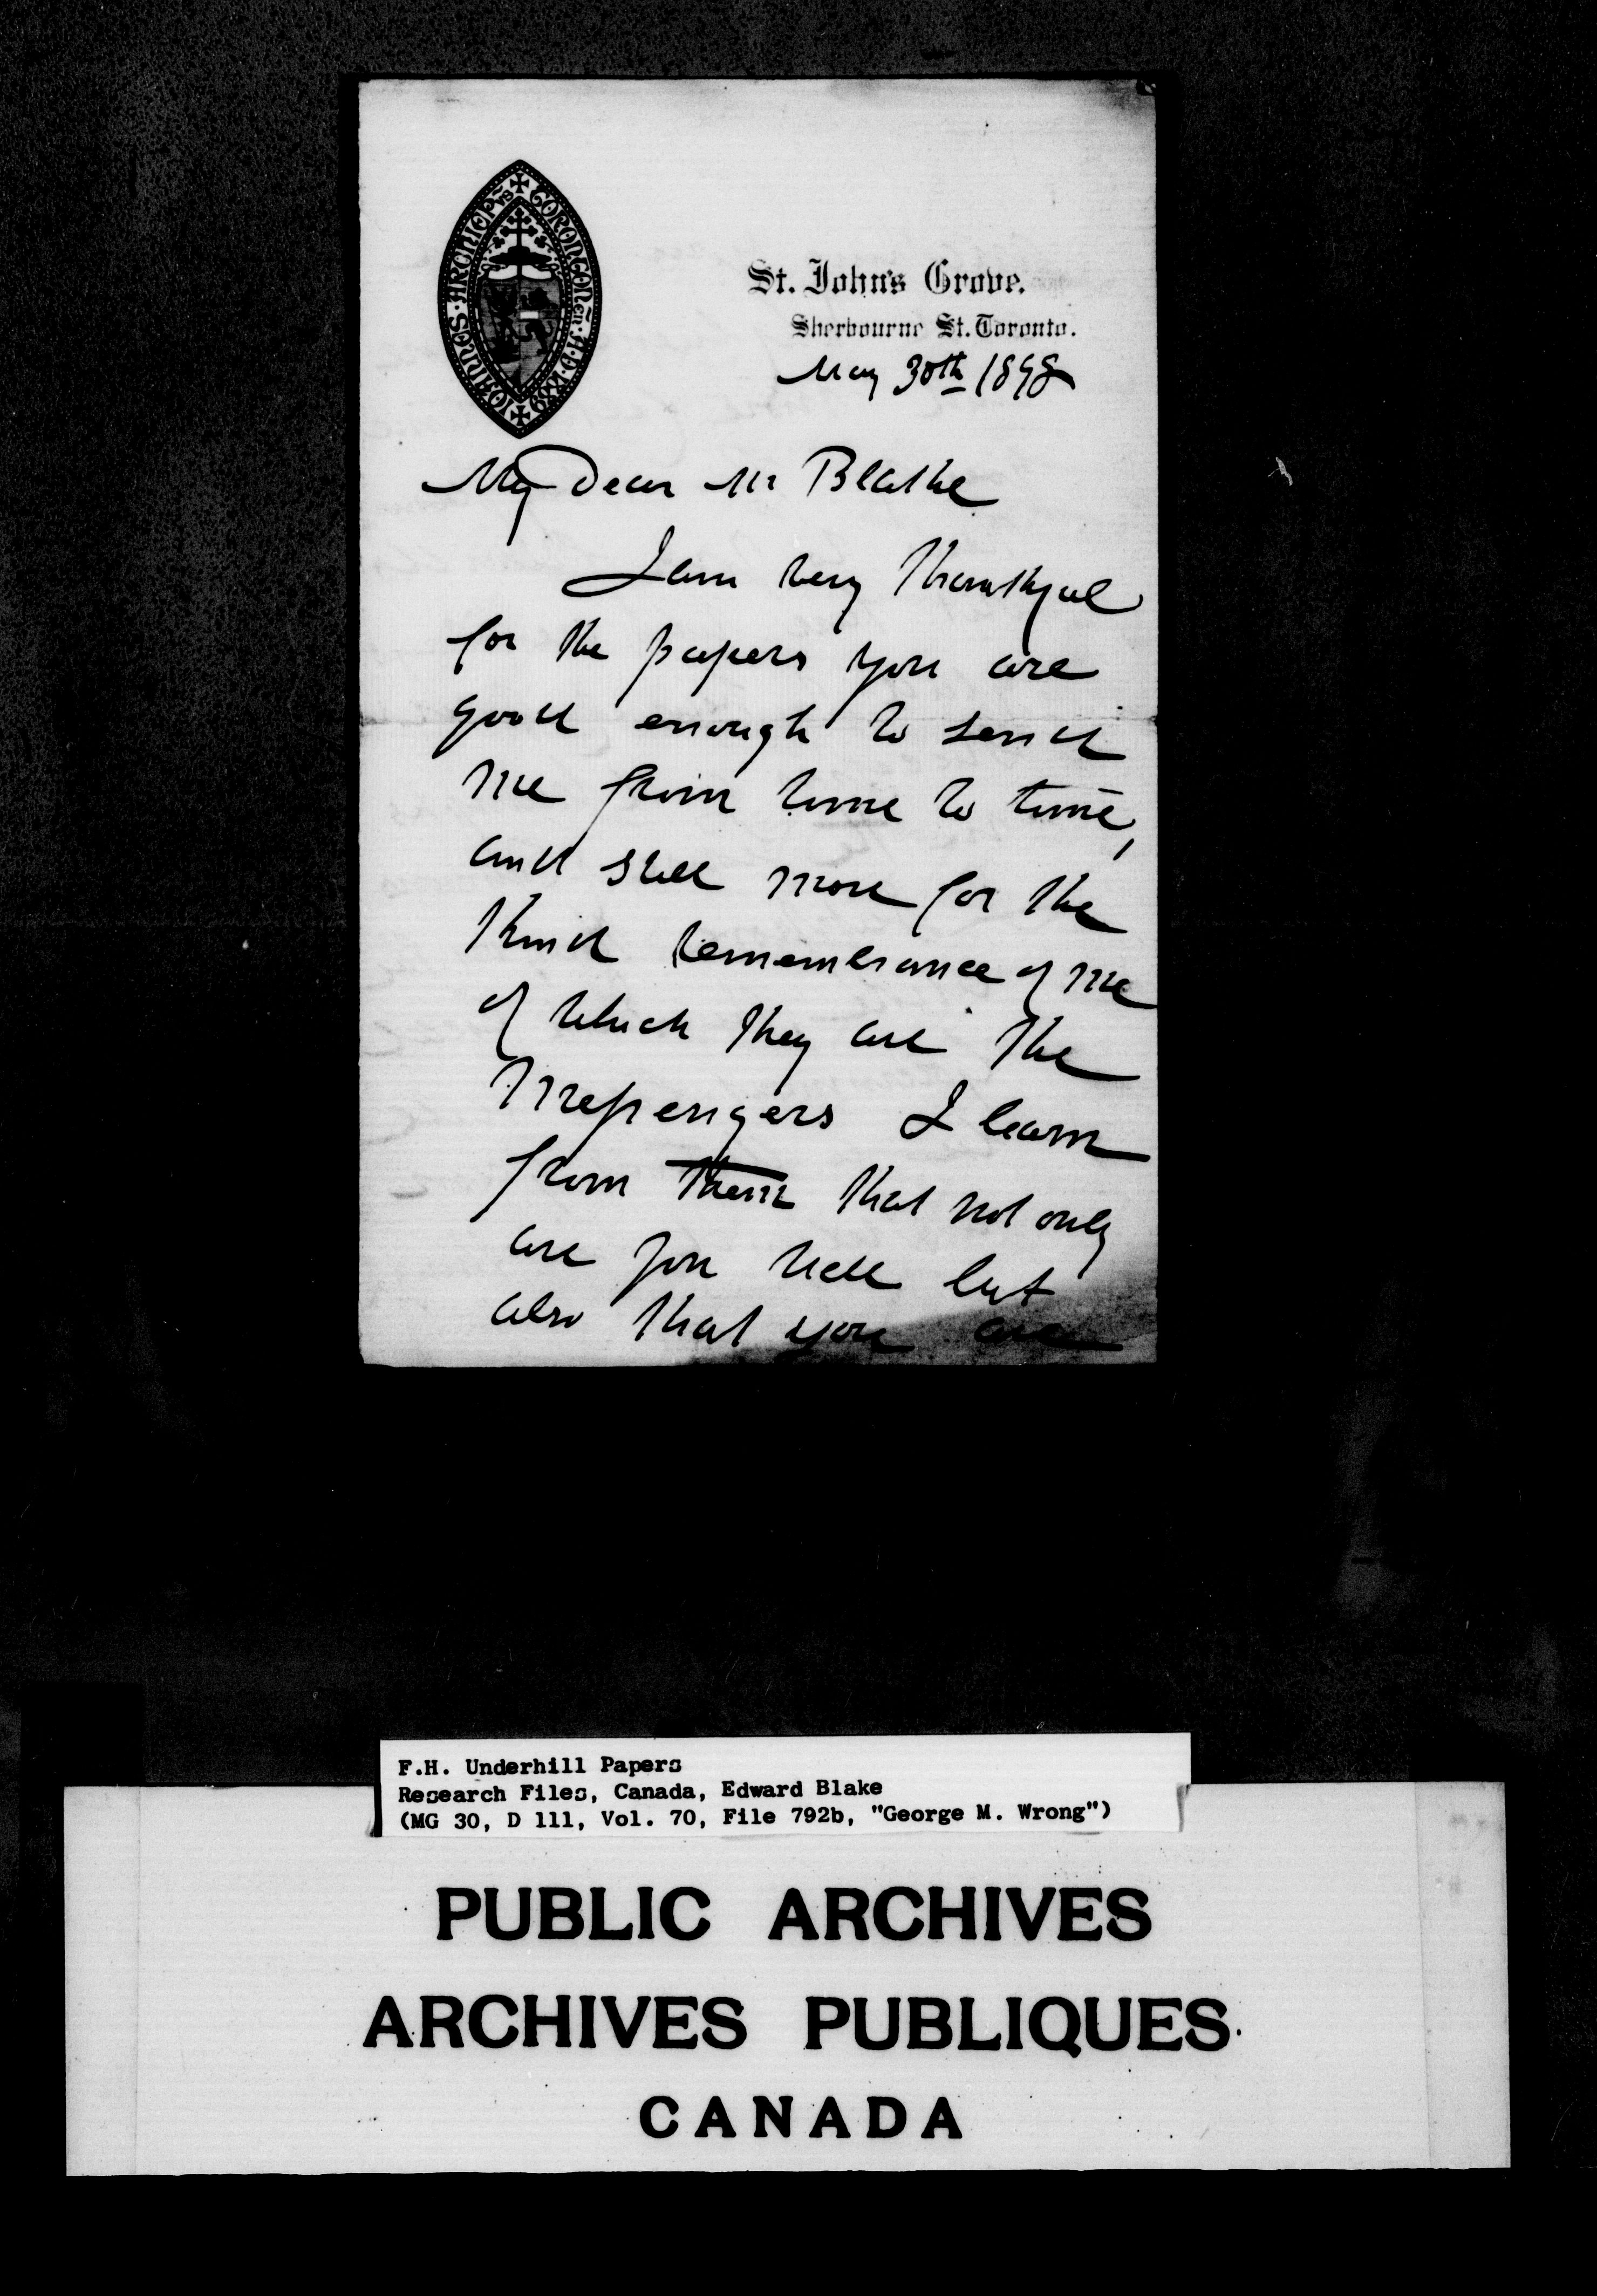 St. John's Grove.
Sherbourne St. Toronto.
May 30th 1898
My Dear Mr Blake
I am very thankful
for the papers you are
good enough to send
me from time to time,
and still more for the
kind remembrance of me
of which they are the
messengers I learn
from them that not only
are you well but
also that you are
F.H. Underhill Papers
Research Files, Canada, Edward Blake
(MG 30, D 111, Vol. 70, File 792b, "George M. Wrong")
PUBLIC ARCHIVES
ARCHIVES PUBLIQUES
CANADA